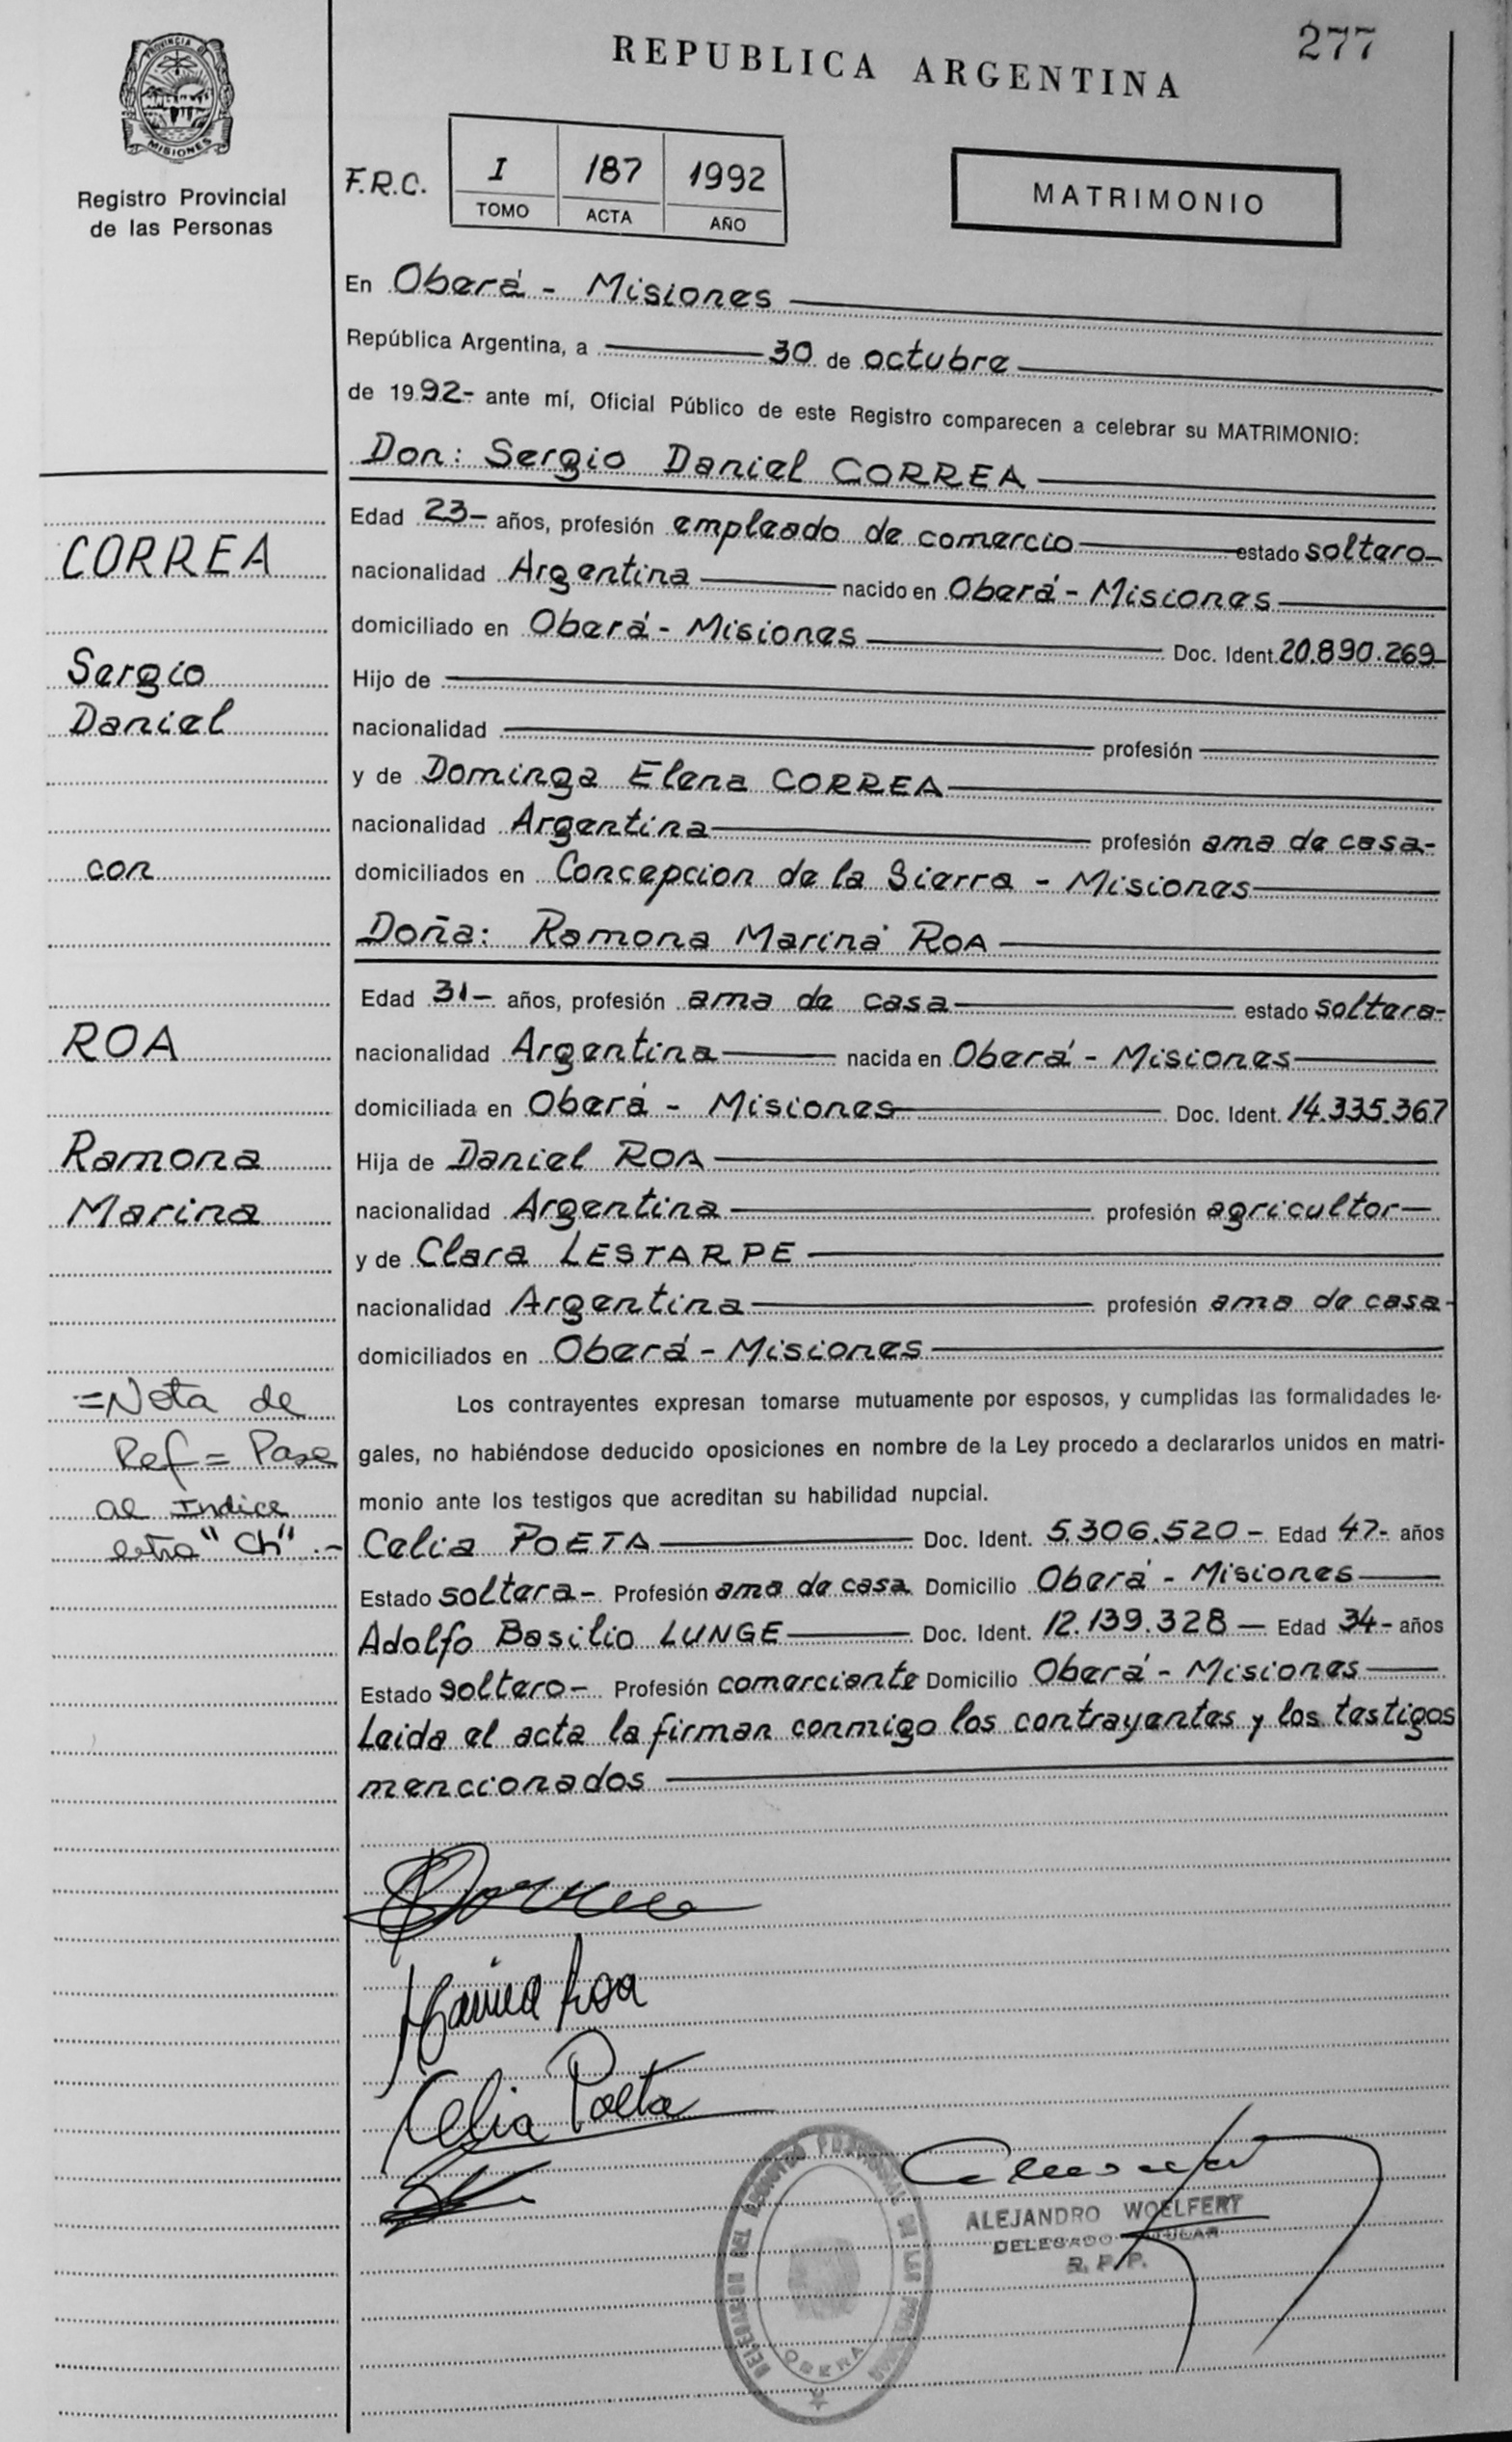 277
REPUBLICA ARGENTINA
PROVINCIA DE
MISIONES
Registro Provincial
de las Personas
F.R.C.
I 187 1992
TOMO ACTA AÑO
MATRIMONIO
En Oberá - Misiones
República Argentina, a 30 de octubre
de 1992- ante mí, Oficial Público de este Registro comparecen a celebrar su MATRIMONIO:
Don: Sergio Daniel CORREA
Edad 23- años, profesión empleado de comercio estado soltero-
CORREA
nacionalidad Argentina nacido en Oberá - Misiones
domiciliado en Oberá - Misiones Doc. Ident. 20.890.269-
Sergio
Hijo de
Daniel
nacionalidad profesión
y de Dominga Elena CORREA
nacionalidad Argentina profesión ama de casa-
con
domiciliados en Concepcion de la Sierra - Misiones
Doña: Ramona Marina ROA
Edad 31- años, profesión ama de casa estado soltera-
ROA
nacionalidad Argentina nacida en Oberá - Misiones
domiciliada en Oberá - Misiones Doc. Ident. 14.335.367
Ramona
Hija de Daniel ROA
Marina
nacionalidad Argentina profesión agricultor-
y de Clara LESTARPE
nacionalidad Argentina profesión ama de casa-
domiciliados en Oberá - Misiones
=Nota de
Ref= Pase
al Indice
letra "Ch".-
Los contrayentes expresan tomarse mutuamente por esposos, y cumplidas las formalidades le-
gales, no habiéndose deducido oposiciones en nombre de la Ley procedo a declararlos unidos en matri-
monio ante los testigos que acreditan su habilidad nupcial.
Celia POETA Doc. Ident. 5.306.520- Edad 47- años
Estado soltera- Profesión ama de casa Domicilio Oberá - Misiones
Adolfo Basilio LUNGE Doc. Ident. 12.139.328- Edad 34- años
Estado soltero- Profesión comerciante Domicilio Oberá - Misiones
Leida el acta la firman conmigo los contrayentes y los testigos
mencionados
Marina Roa
Celia Poeta
ALEJANDRO WOELFERT
DELEGADO TITULAR
R. P. P.
DELEGACION DEL REGISTRO PROVINCIAL DE LAS PERSONAS
OBERA